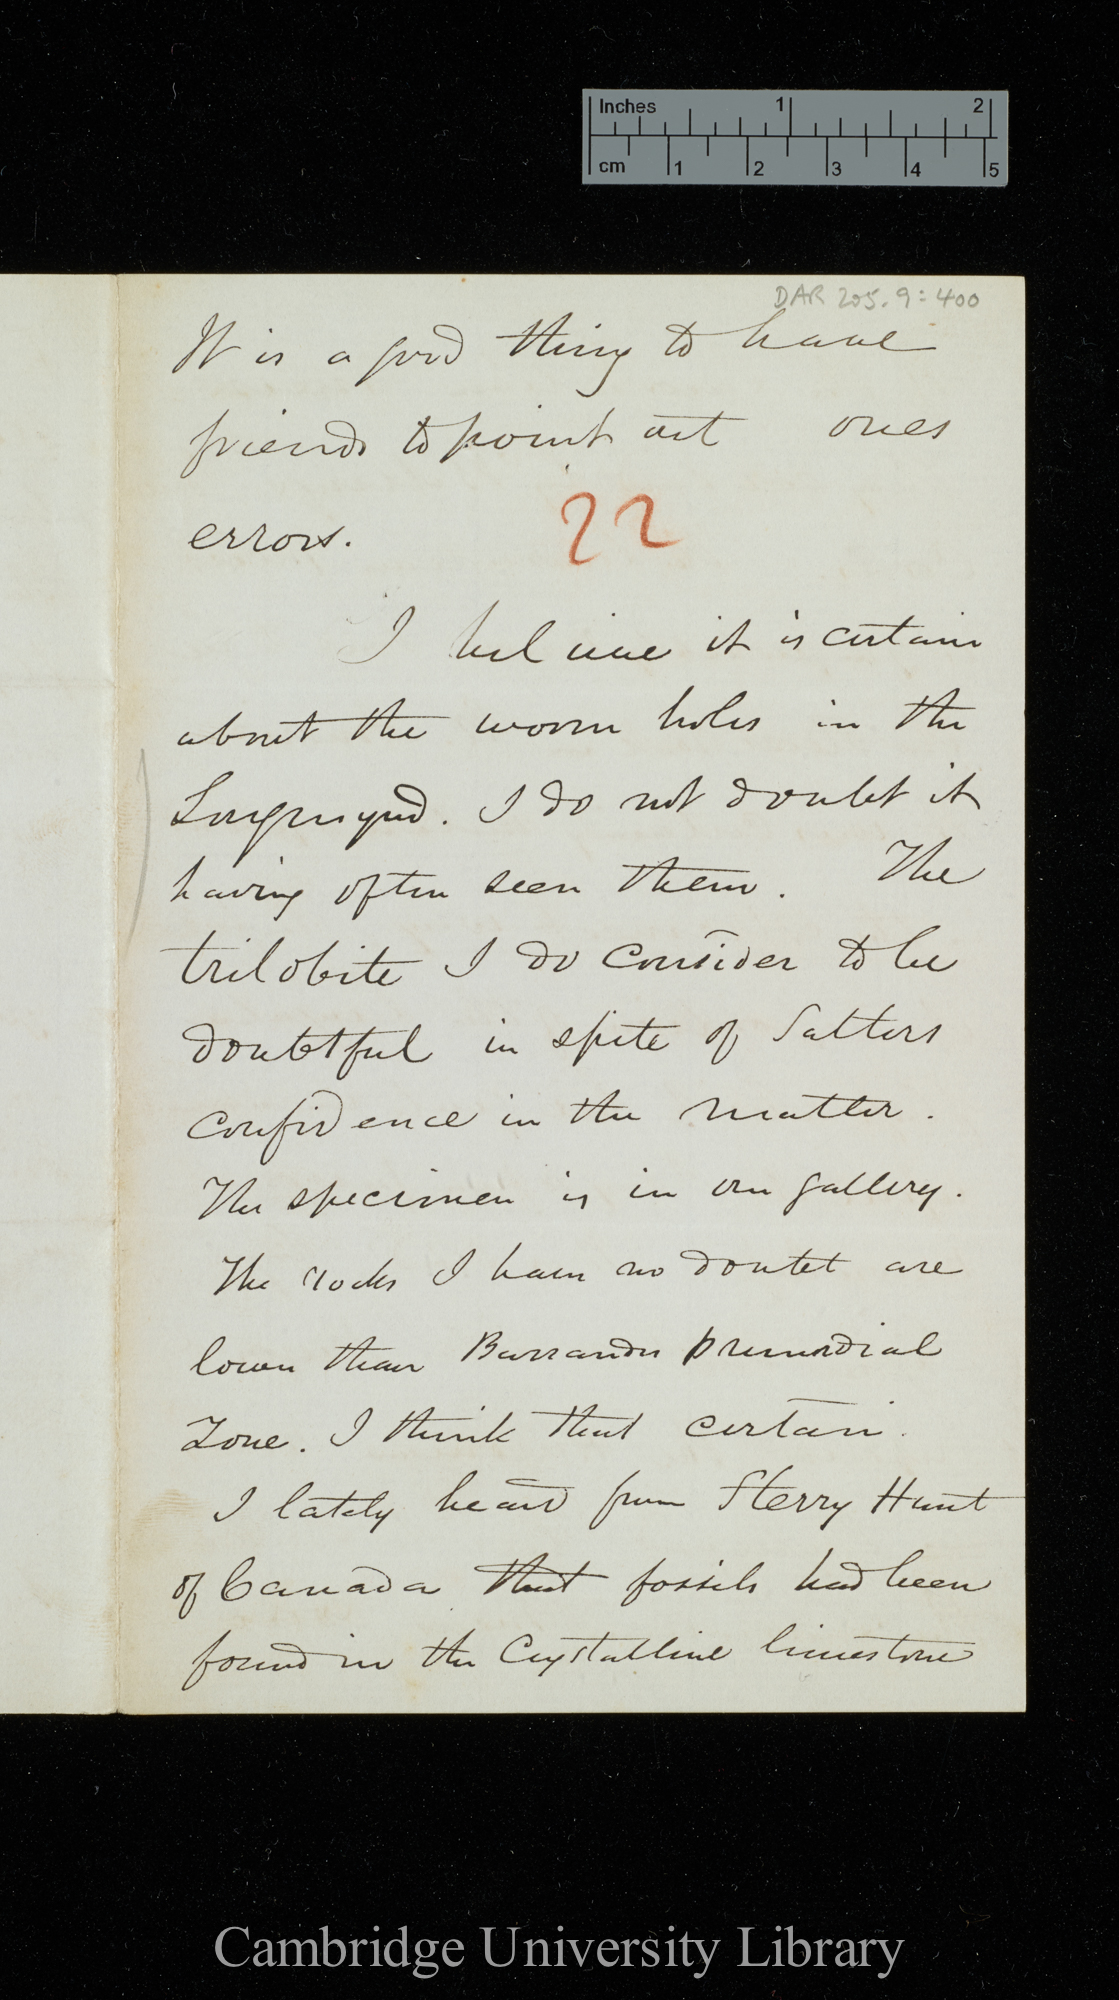 Inches 1 2
cm 1 2 3 4 5
DAR 205.9:400
It is a good thing to have
friends to point out ones
errors.
22
I believe it is certain
about the worm holes in the
Longmynd. I do not doubt it
having often seen them. The
trilobite I do consider to be
doubtful in spite of Salters
confidence in the matter.
The specimen is in our gallery.
The rocks I have no doubt are
lower than Barrandes primordial
Zone. I think that certain.
I lately heard from Sterry Hunt
of Canada that fossils had been
found in the Crystalline limestone
Cambridge University Library